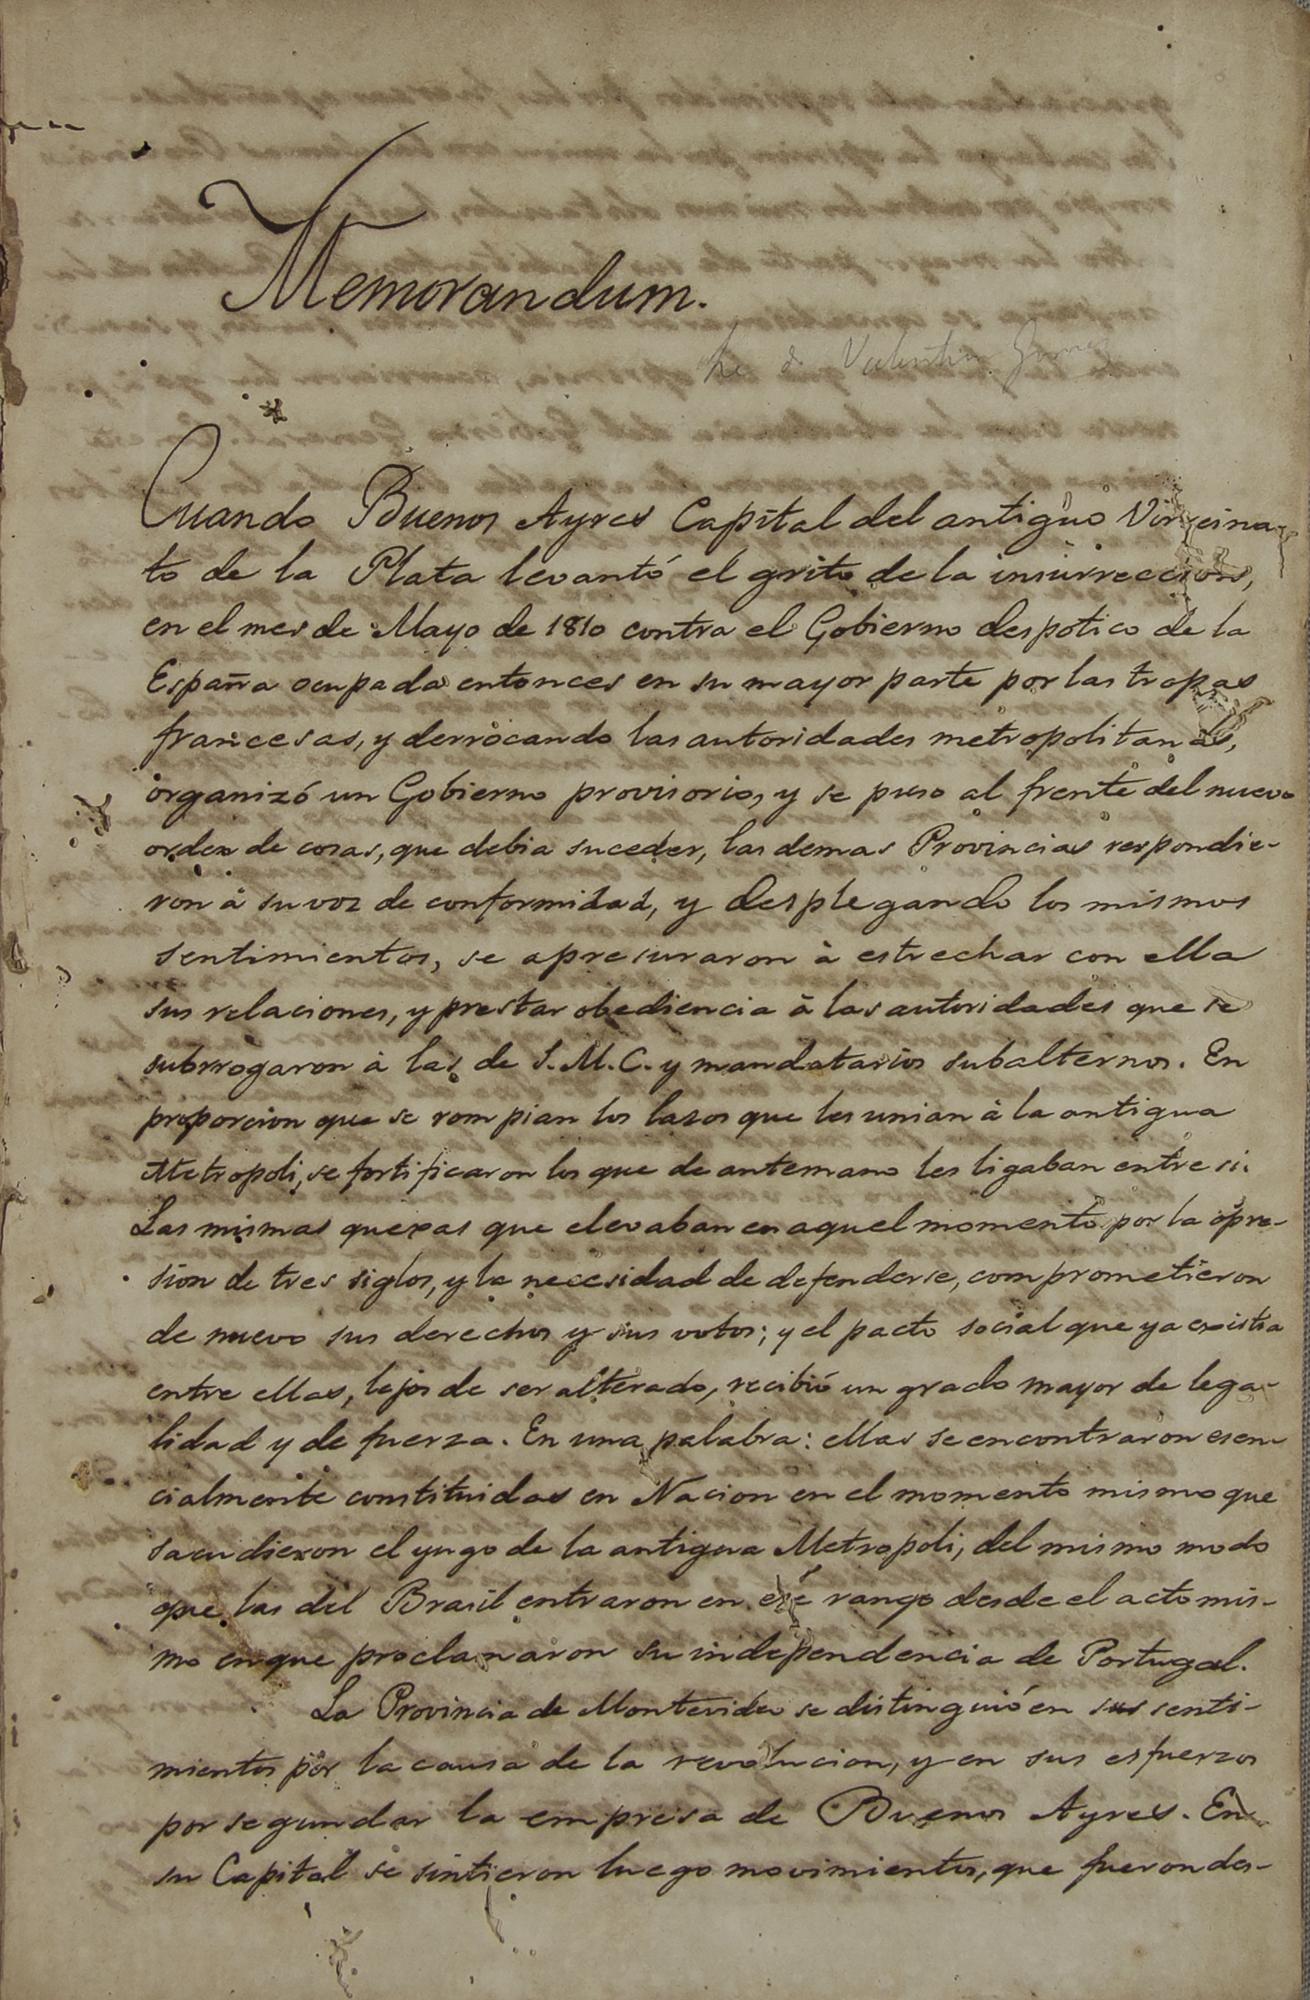 Memorandum.
de Valentin Gomez
Cuando Buenos Ayres Capital del antiguo Virreina-
to de la Plata levantó el grito de la insurreccion,
en el mes de Mayo de 1810 contra el Gobierno despotico de la
España ocupada entonces en su mayor parte por las tropas
francesas, y derrocando las autoridades metropolitanas,
organizó un Gobierno provisorio, y se puso al frente del nuevo
orden de cosas, que debia suceder, las demas Provincias respondie-
ron à su voz de conformidad, y desplegando los mismos
sentimientos, se apresuraron à estrechar con ella
sus relaciones, y prestar obediencia à las autoridades que se
subrrogaron à las de S.M.C. y mandatarios subalternos. En
proporcion que se rompian los lazos que les unian à la antigua
Metropoli, se fortificaron los que de antemano les ligaban entre si.
Las mismas quexas que elevaban en aquel momento por la opre-
sion de tres siglos, y la necesidad de defenderse, comprometieron
de nuevo sus derechos y sus votos; y el pacto social que ya existia
entre ellas, lejos de ser alterado, recibió un grado mayor de lega-
lidad y de fuerza. En una palabra: ellas se encontraron esen-
cialmente constituidas en Nacion en el momento mismo que
sacudieron el yugo de la antigua Metropoli, del mismo modo
que las del Brasil entraron en ese rango desde el acto mis-
mo en que proclamaron su independencia de Portugal.
La Provincia de Montevideo se distinguió en sus senti-
mientos por la causa de la revolucion, y en sus esfuerzos
por segundar la empresa de Buenos Ayres. En
su Capital se sintieron luego movimientos, que fueron des-